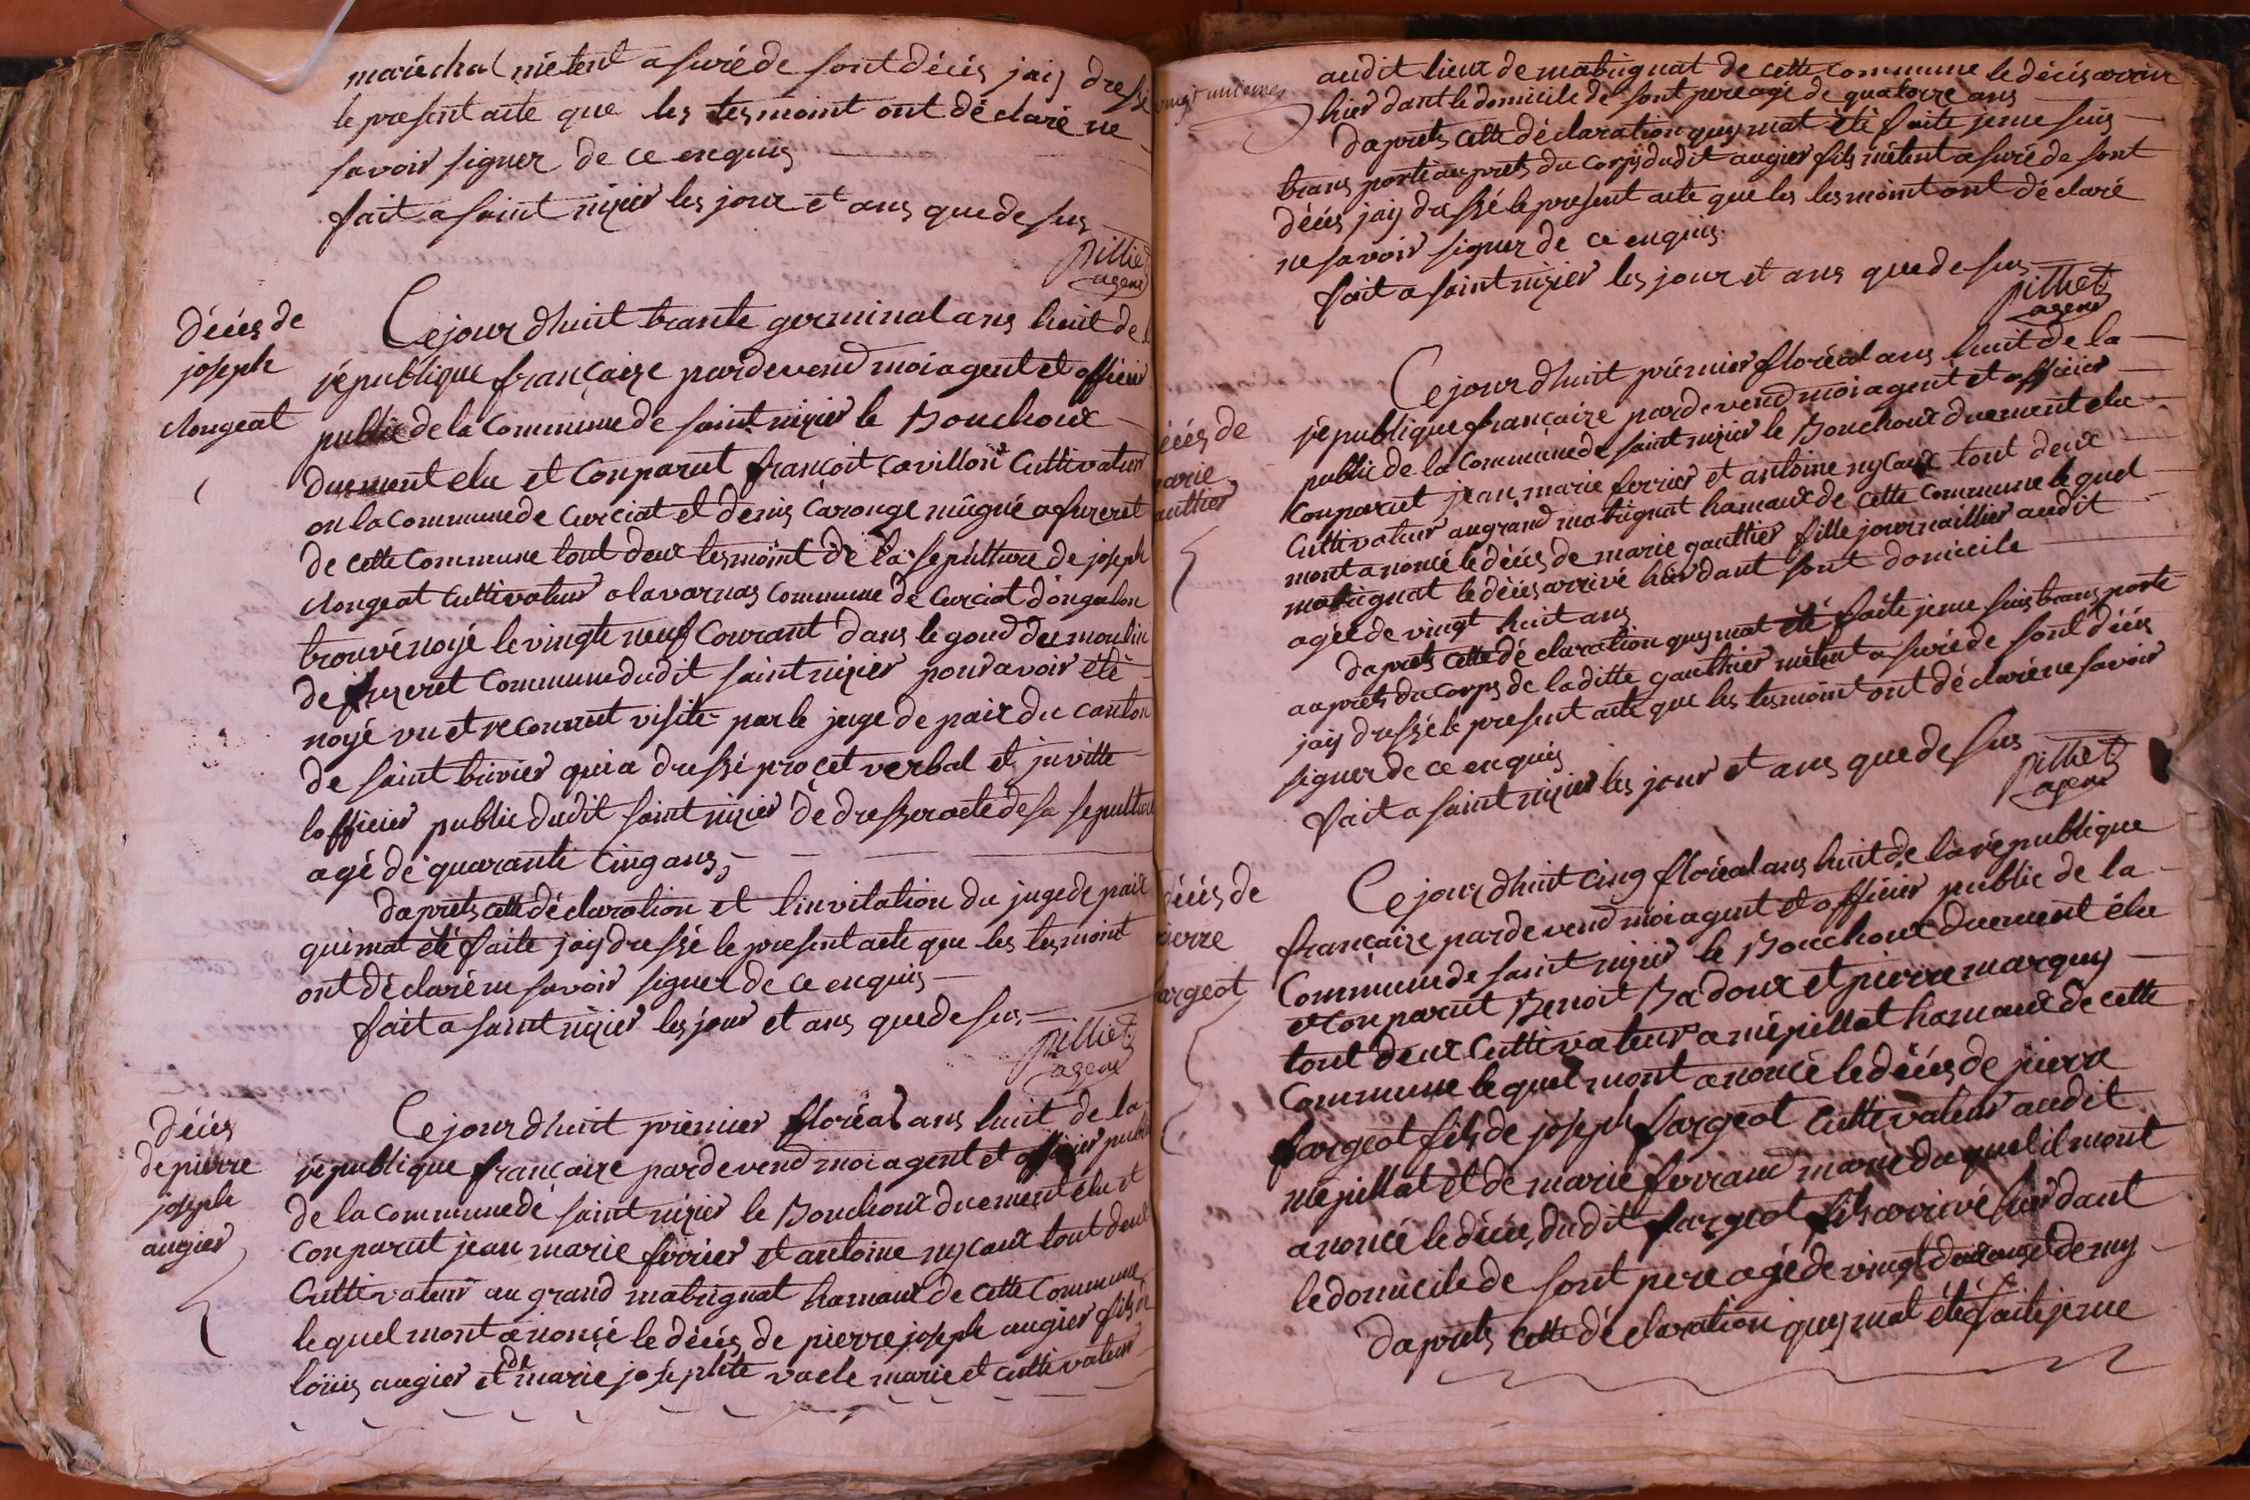 maréchal métent asuréde sont décés jaij dressé
le present acte que les tesmoint ont déclaré ne
savoir signer de ce enquis
fait a saint nizier les jour et ans que de sus
pilliet
agent
décés de
joseph
clongeat
Cejourdhuit trante germinal ans huit de
république françaize pardevend moi agent et officier
public de la commune de saint nizier le Bouchoux
duement elu et Comparut françoit cavillon cultivateur
on la commune de Curciat et denis Caronge migné a fureret
de cette commune tout deux tesmoint de la sepulture de joseph
clongeat cultivateur a lavarnas commune de Curciat dongalon
trouvé noyé le vingte neuf Courant dans le goud du moulin
de fuzeret commune dudit saint nizier pour avoir été
noyé vu et reconnut visite par le juge de paix du canton
de saint trivier qui a dressé proçet verbal et juvitte
lofficier public dudit saint nizier de dresser acte de sa sepulture
agé de quarante cinq ans
daprets cette déclaration et linvitation du juge de paix
qui mat été faite jaij dressé le present acte que les tesmoint
ont déclaré ne savoir signer de ce enquis
fait a saint nizier les jour et ans que de sus
pilliet
agent
décés
de pierre
joseph
augier
Cejourdhuit prémier floréal ans huit de la
république françaize pardevend moi agent et officier public
de la commune de saint nizier le Bouchoux duement élu et
Comparut jean marie ferrier et antoine nycaux tout deux
Cultivateur au grand matrignat hamaux de cette Commune
lequel mont anoncé le décés de pierre joseph augier fils
louis augier et de marie joséphte vacle marie et cultivateur
vingt unieme
audit lieux de matrignat de cette commune le décés arrivé
hier dant le domicile de sont pere agé de quatorze ans
daprets cette déclaration quy mat été faite jeme suis
trans porté auprets du corps dudit augier fils métent asuré de sont
décés jaij dressé le present acte que les tesmoint ont déclaré
ne savoir signer de ce enquis
fait a saint nizier les jour et ans que de sus
pilliet
agent
décés de
marie
gauthier
Cejourdhuit prémier floréal ans huit de la
république françaize pardevend moi agent et officier
public de la commune de saint nizier le Bouchoux duement elu
Comparut jean marie ferrier et antoine nycaux tout deux
Cultivateur au grand matrignat hamaux de cette commune lequel
mont anoncé le décés de marie gauttier fille journaillier audit
matrignat le décés arrivé hier dant sont domicile
agée de vingt huit ans
daprets cette déclaration quy mat été faite jeme suis trans porté
auprets du corps de laditte gauthier métent asuré de sont décés
jaij dressé le present acte que les tesmoint ont déclaré ne savoir
signer de ce enquis
fait a saint nizier les jour et ans que de sus
pilliet
agent
décés de
pierre
fargeot
Cejourdhuit cinq floréal ans huit de la république
françaize pardevend moi agent et officier public de la
Commune de saint nizier le Bouchoux duement élu
et Comparut Benoit Badoux et pierre marquy
tout deux Cultivateur a mépillat hamaux de cette
Commune lequel mont anoncé le décés de pierre
fargeot fils de joseph fargeot Cultivateur audit
mépillat et de marie ferrand marie duquel il mont
anoncé le décés dudit fargeot fils arrivé hier dant
le domicile de sont pere agé de vingt deux ans et demy
daprets cette déclaration quy mat été faite jeme